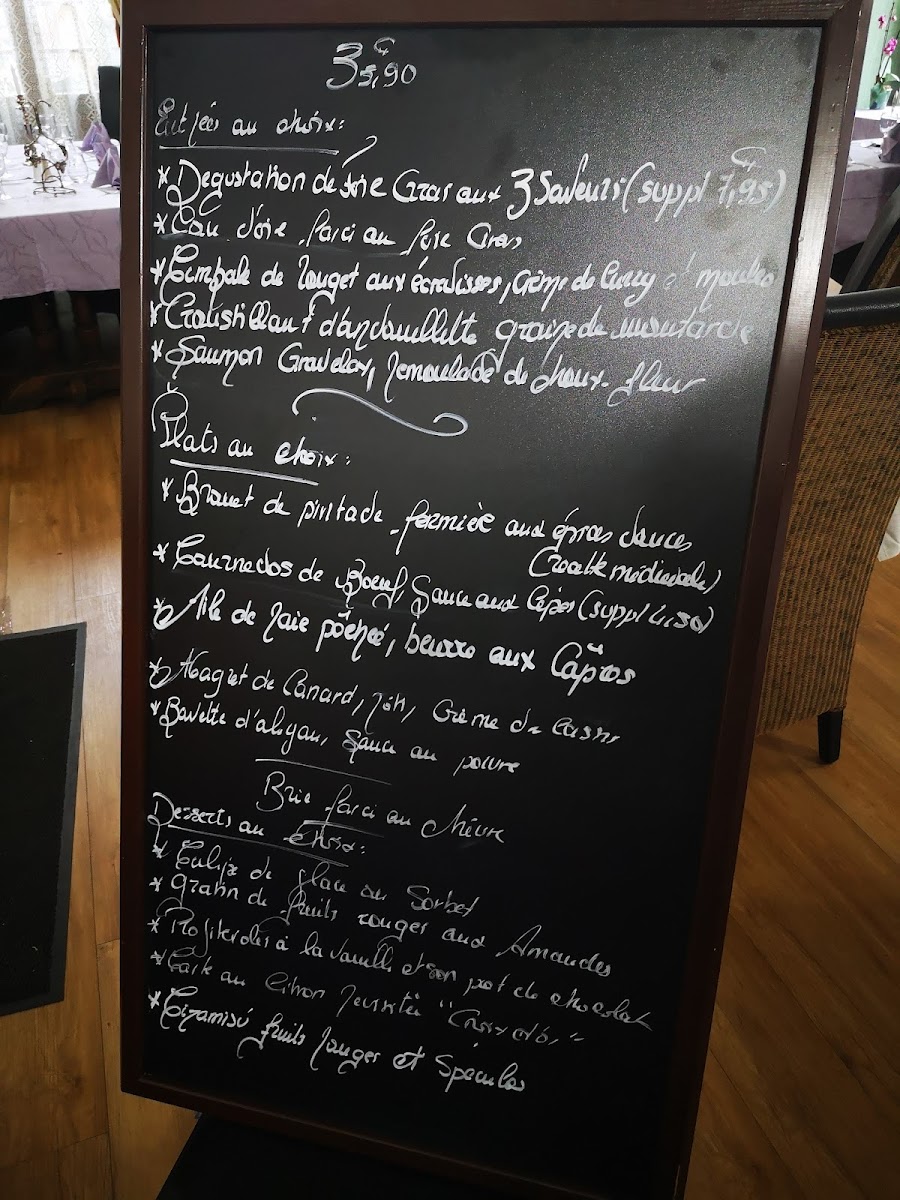 35,90 €
Entrées au choix:
* Degustation de foie Gras aux 3 Saveurs (suppl 7,95 €)
* Cou d'oie farci au foie Gras
* Timbale de rouget aux écrevisses, Crème de Curry et moules
* Croustillant d'andouillette graine de moutarde
* Saumon Gravelax, remoulade de choux-fleur
Plats au choix:
* Brouet de pintade fermière aux épices douces
(recette médiévale)
* Tournedos de Boeuf, Sauce aux Cèpes (suppl 4,50)
* Aile de raie pôchée, beurre aux Câpres
* Magret de Canard, rôti, Crème de Cassis
* Bavette d'aloyau, Sauce au poivre
Brie farci au chèvre
Desserts au Choix:
* Tulipe de glace ou Sorbet
* gratin de fruits rouges aux Amandes
* Profiteroles à la vanille et son pot de chocolat
* Tarte au Citron revisitée
* Tiramisú fruits rouges et Speculos